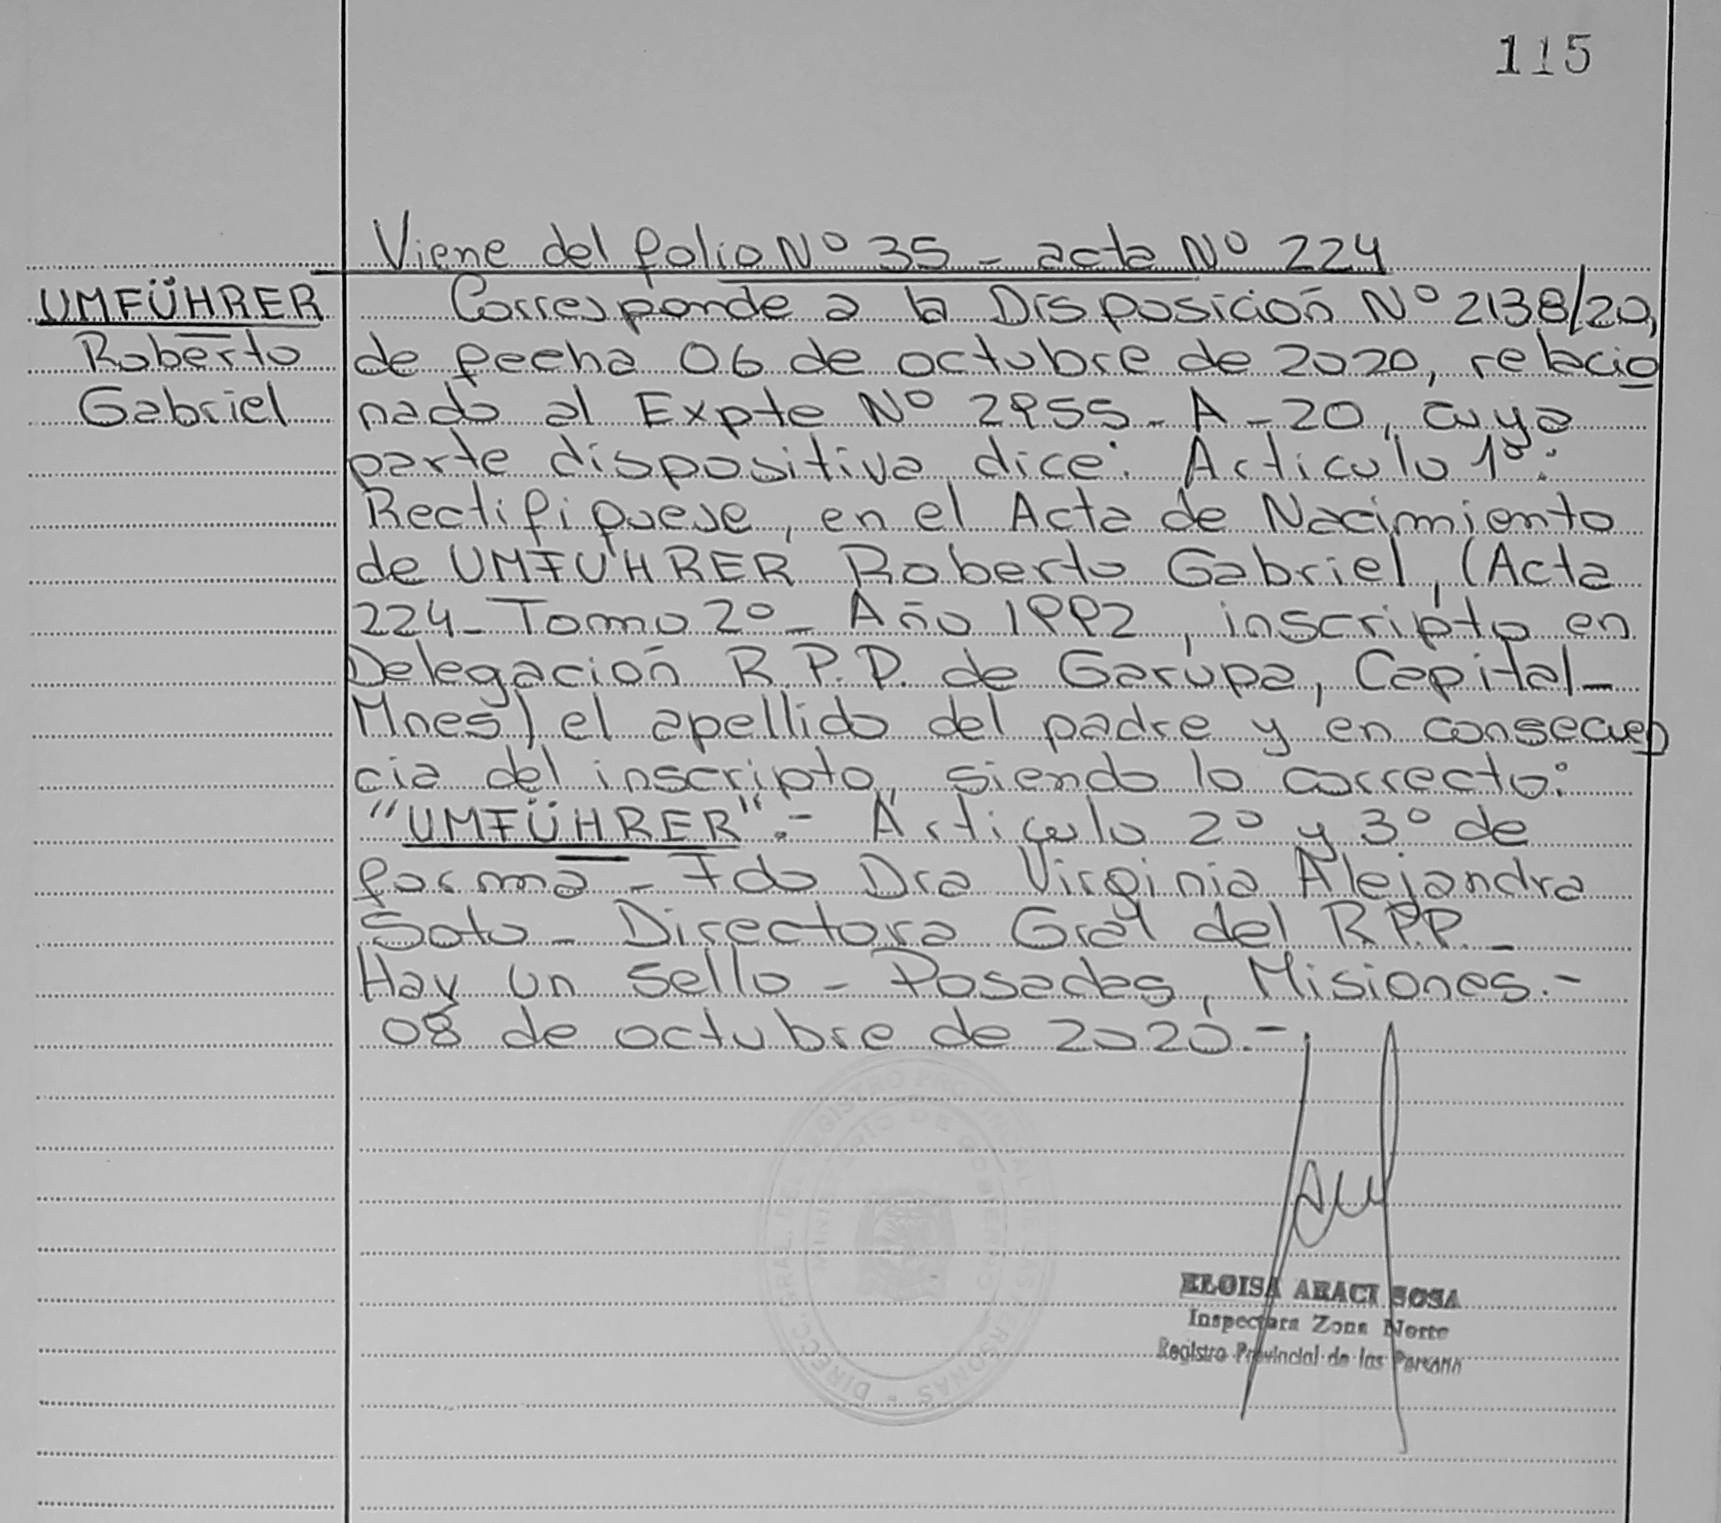 115
Viene del folio Nº 35 - acta Nº 224
UMFÜHRER
Roberto
Gabriel
Corresponde a la Disposición Nº 2138/20,
de fecha 06 de octubre de 2020, relacio
nado al Expte Nº 2955-A-20, cuya
parte dispositiva dice: Articulo 1º:
Rectifiquese, en el Acta de Nacimiento
de UMFUHRER Roberto Gabriel, (Acta
224-Tomo 2º- Año 1992, inscripto en
Delegación R.P.P. de Garupa, Capital-
Mnes) el apellido del padre y en consecuen
cia del inscripto, siendo lo correcto:
"UMFÜHRER".- Articulo 2º y 3º de
forma - Fdo Dra Virginia Alejandra
Soto - Directora Gral del R.P.P. -
Hay un sello - Posadas, Misiones.-
08 de octubre de 2020.-
DIREC. GRAL. DEL REGISTRO PROVINCIAL DE LAS PERSONAS
MINISTERIO DE GOBIERNO
ELOISA ARACI SOSA
Inspectora Zona Norte
Registro Provincial de las Personas